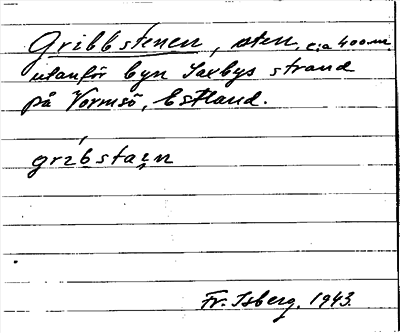 Gribbstenen, sten, c:a 400 m.
utanför byn Saxbys strand
på Vormsö, Estland.
gríbstai̯n
Fr. Isberg. 1943.